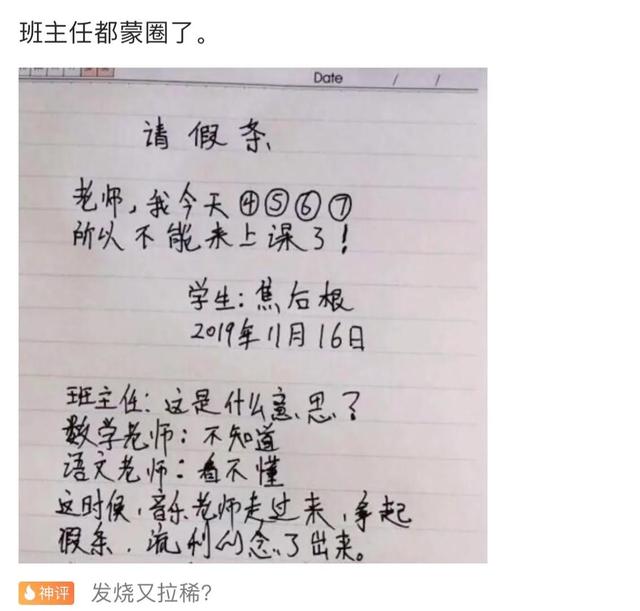 班主任都蒙圈了。
Date / /
请假条
老师,我今天④⑤⑥⑦
所以不能来上课了!
学生:焦后根
2019年11月16日
班主任:这是什么意思?
数学老师:不知道
语文老师:看不懂
这时候,音乐老师走过来,拿起
假条,流利的念了出来。
神评 发烧又拉稀?